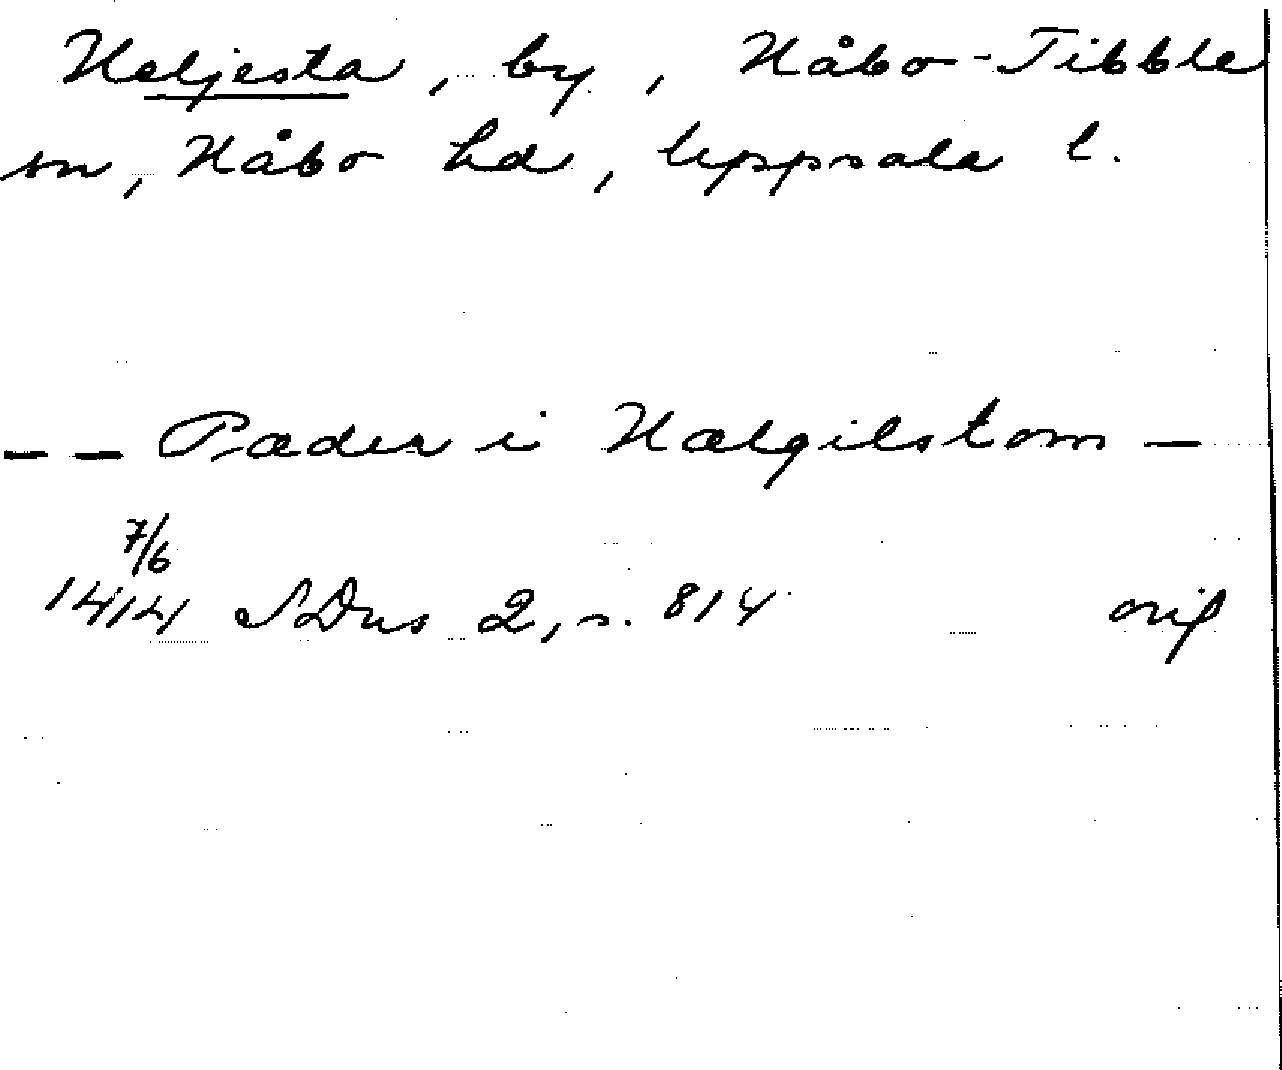 Heljesta, by, Håbo-Tibble
sn, Håbo hd, Uppsala l.
-- Pæder i Hælgilstom -
7/6
1414 SDns 2, s. 814 orig